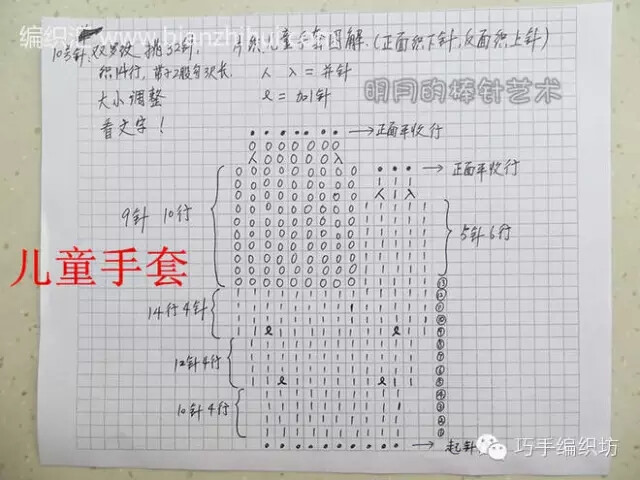 编织汇 www.bianzhihui.com
10号针,双罗纹 挑32针, 片织儿童手套图解.(正面织下针,反面织上针)
织14行,
人 入 = 并针
明月的棒针艺术
大小调整
ℓ = 加1针
看文字!
正面平收行
正面平收行
9针 10行
5针6行
儿童手套
14行4针
12针4行
10针4行
起针
巧手编织坊